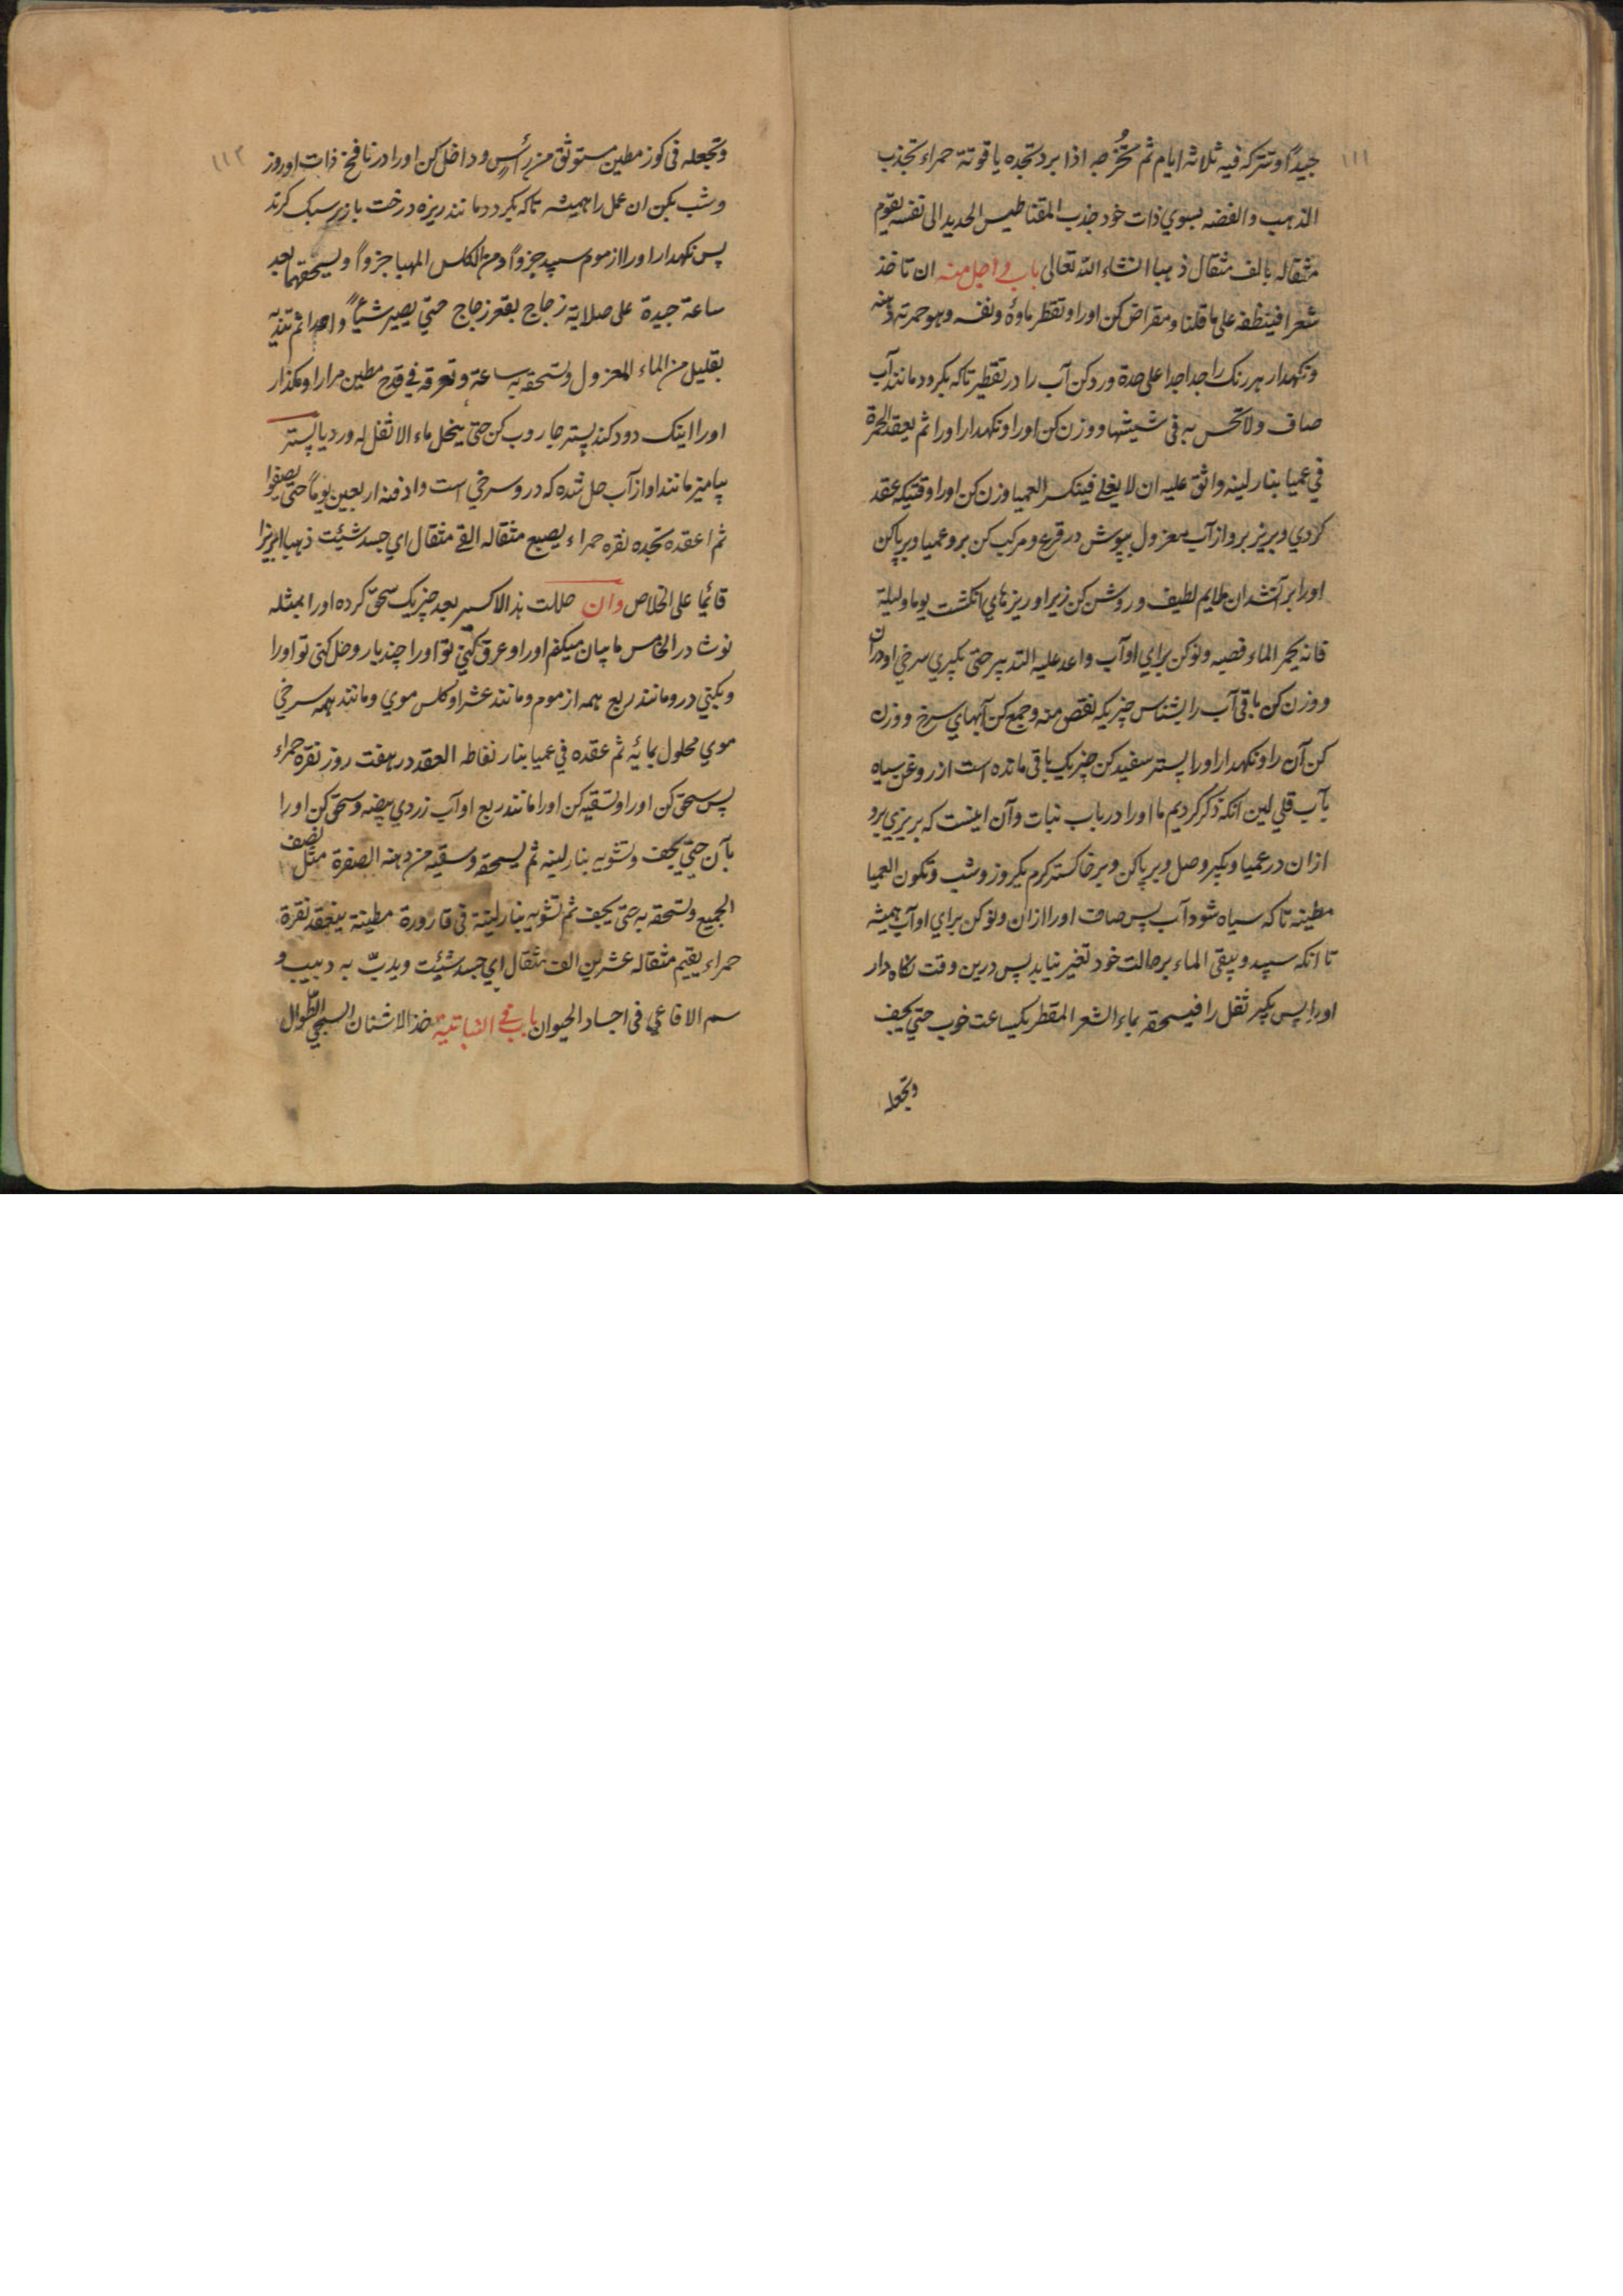 ١١١
جیداً و تترکه فیه ثلاثه ایام ثم تُخرجه اذا برد تجده یاقوتة حمراء تجذب
الذهب و الفضه بسوي ذات خود جذب المقناطیس الحدید الی نفسه یقوم
مثقاله بالف مثقال ذهبا انشاء الله تعالی باب و اجل منه ان تاخذ
شعرا فینظفه علی ما قلنا و مقراض کن اورا و تقطر ماوه و نفسه و هو حمرته و دهنه
و نکهدار هر رنک را جدا جدا علی حدة و رد کن آب را در تقطیر تا که بکردد مانند آب
صاف و لا تحس به فی شیشها و وزن کن اورا و نکهدار اورا ثم یعقد الحمرة
في عمیا بنار لینه واثق علیه ان لا یغلي فینکسر العمیا وزن کن اورا وقتیکه عقد
کردي و بریز برو از آب معزول بپوش در قرع و مرکب کن برو عمیا و برپا کن
اورا بر آتشدان ملایم لطیف و روشن کن زیر او ریزهاي انکشت یوما و لیلة
فانه یحمر الماء فصبه و نو کن براي او آب و اعد علیه التدبیر حتی بکیري سرخي او در ان
و وزن کن باقی آب را بشناس چیزیکه نقص منه و جمع کن آبهاي سرخ و وزن
کن آن را و نکهدار اورا پستر سفید کن چیزیک باقی مانده است از روغن سیاه
بآب قلي لین انکه ذکر کردیم ما اورا در باب نبات و آن اینست که بریزي برو
ازان در عمیا و بکیر وصل و برپا کن و بر خاکستر کرم یکروز و شب و تکون العمیا
مطینه تا که سیاه شود آب پس صاف اورا ازان و نو کن براي او آب همیشه
تا انکه سپید و یبقی الماء بر حالت خود تغیر نیابد پس درین وقت نکاه دار
اورا پس بکیر ثقل را فیسحقه بماء الشعر المقطر یکساعت خوب حتي یجف
و تجعله
١١٢
و تجعله فی کوز مطین مستوثق من رأس و داخل کن اورا در نافخ ذات او روز
و شب بکن ان عمل را همیشه تا که بکردد مانند ریزه درخت بازیر سبک کرند
پس نکهدار اورا از موم سپید جزواً و من الکلس المهیا جزواً و یسحقهما بعد
ساعة جیدة علی صلایة زجاج بقعر زجاج حتي یصیر شیئاً واحدا ثم تندیه
بقلیل من الماء المعزول و تسحقه به ساعة و تعرقه في قدح مطین مرارا و بکذار
اورا اینک دود کند پستر جاروب کن حتي ینحل ماء الا ثفل له و ردیا پستر
بیامیز مانند او از آب حل شده که در و سرخي است و ادفنه اربعین یوماً حتی یصفوا
ثم اعقده تجده نقره حمراء یصبع مثقاله الفی مثقال اي جسد شئیت ذهبا ابریزا
قائما علی الخلاص وان حللت هذا الاکسیر بعد چیزیک سحق کرده اورا بمثله
نوشادر الخامس ما بیان میکنم اورا و عرق کني تو اورا چند بار و حل کنی تو اورا
و بکني در و مانند ربع همه از موم و مانند عشر او کلس موي و مانند همه سرخي
موي محلول بمائیه ثم عقده في عمیا بنار نفاطه العقد در هفت روز نقره حمراء
پس سحق کن اورا و تسقیه کن اورا مانند ربع او آب زردي بیضه و سحق کن اورا
بآن حتي یجف و تشویه بنار لینه ثم یسحقه و سقیه من دهنه الصفرة مثل نصف
الجمیع و تسحقه به حتی یجف ثم تشویه بنار لینة فی قارورة مطینة ینعقد نقرة
حمراء یقیم مثقاله عشرین الف مثقال اي جسد شئیت و یدبّ به دبیب و
سم الافاعي فی اجساد الحیوان باب في النباتیة خذ الاشنان السبحي الطوال